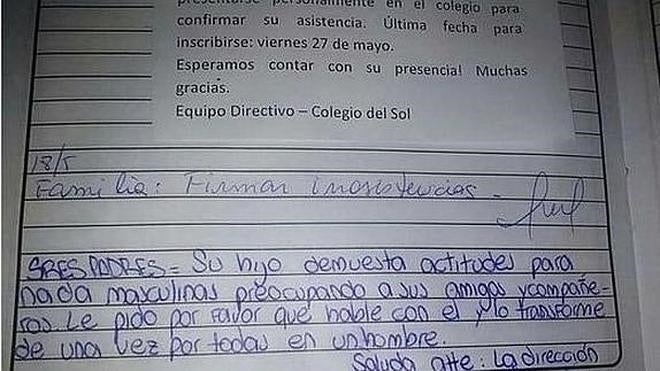 presentarse personalmente en el colegio para
confirmar su asistencia. Última fecha para
inscribirse: viernes 27 de mayo.
Esperamos contar con su presencia! Muchas
gracias.
Equipo Directivo – Colegio del Sol
18/5
Familia: Firmar inasistencias.
SRES PADRES = Su hijo demuesta actitudes para
nada masculinas preocupando a sus amigas y compañe-
ras. Le pido por favor que hable con el y lo transforme
de una vez por todas en un hombre.
Saluda atte: La dirección